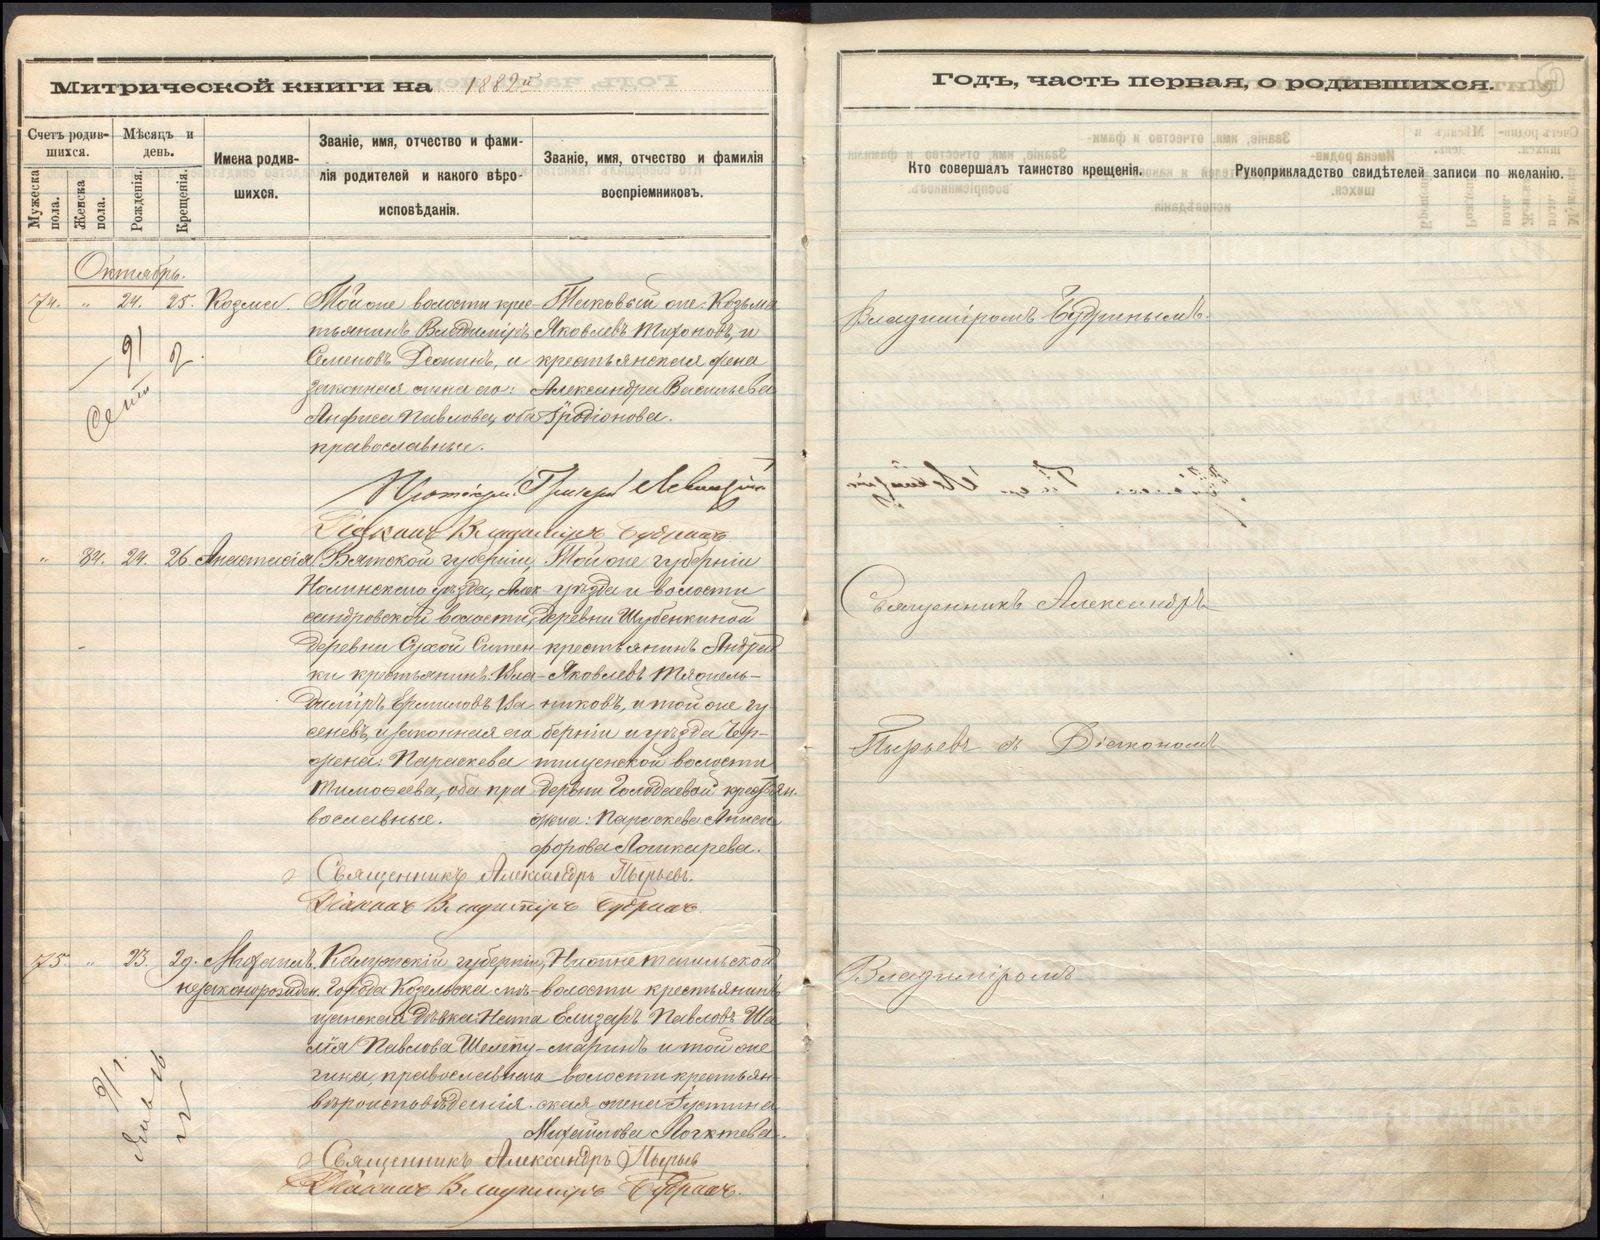 Митрической книги на 1882й
Годъ, часть первая, о родившихся.
Счетъ родив-
шихся.
Мѣсяцъ и
день.
Мужеска
пола.
Женска
пола.
Рожденія.
Крещенія.
Имена родив-
шихся.
Званіе, имя, отчество и фами-
лія родителей и какого вѣро-
исповѣданія.
Званіе, имя, отчество и фамилія
воспріемниковъ.
Кто совершалъ таинство крещенія.
Рукоприкладство свидѣтелей записи по желанію.
Октябрь.
74. " 24. 25. Козма.
Той же волости крес-
тьянинъ Владиміръ
Семеновъ и
законная жена его:
Анфиса Павлова, оба
православные.
же: Козьма
Яковлевъ Тихоновъ, и
крестьянская жена
Александра Васильева
Иродіонова.
Владиміромъ
Протоіерей Григорій
Діаконъ Владиміръ
" 84. 24. 26. Анастасія
Вятской губерніи,
Нолинскаго уѣзда, Алек
сандровской волости,
деревни Сухой
ки крестьянинъ Вла-
диміръ Ермиловъ Ва
сеневъ, и законная его
жена: Параскева
Тимофеева, оба пра
вославные.
Той же губерніи
уѣзда и волости
деревни Шубенкиной
крестьянинъ Андрей
Яковлевъ
никовъ, и той же гу-
берніи и уѣзда Чер-
тищенской волости
деревни Голодаевой крестьян.
жена: Параскева Аниси
форова Лошкарева.
Священникъ Александръ
Пырьевъ съ Діакономъ
Священникъ Александръ Пырьевъ.
Діаконъ Владиміръ
75. " 23. 29. Михаилъ.
незаконорожден.
Калужской губерніи,
города Козельска мѣ-
щанская дѣвка: Ната
лія Павлова Шелепу-
гина, православнаго
вѣроисповѣданія.
Нижнетагильской
волости крестьянинъ
Елизаръ Павловъ Ша
маринъ и той же
волости крестьян-
ская жена Іустина
Михайлова Логктева.
Владиміромъ
Священникъ Александръ Пырьевъ
Діаконъ Владиміръ